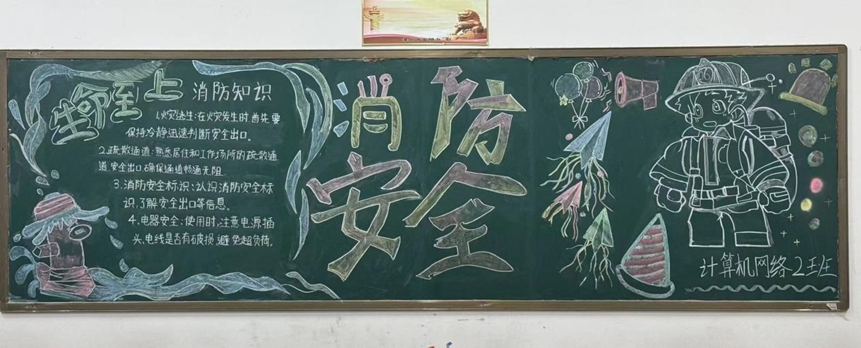 生命至上
消防知识
1.火灾逃生:在火灾发生时,首先要
保持冷静迅速判断安全出口。
2.疏散通道:熟悉居住和工作场所的疏散通
道,安全出口,确保通道畅通无阻
3.消防安全标识:认识消防安全标
识,了解安全出口等信息。
4.电器安全:使用时,注意电源插
头,电线是否有破损,避免超负荷。
消防
安全
计算机网络2班